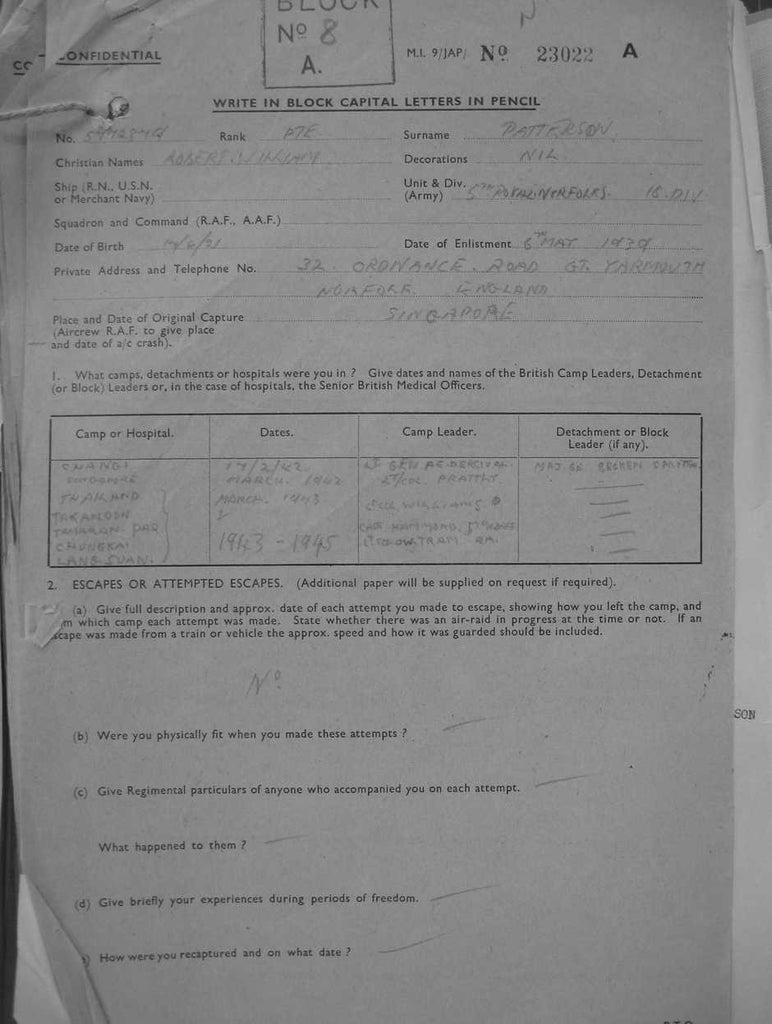 BLOCK
No 8
A.
CONFIDENTIAL
M.I. 9/JAP/ No 23022 A
WRITE IN BLOCK CAPITAL LETTERS IN PENCIL
No. Rank PTE Surname PATTERSON
Christian Names ROBERT. WILLIAM Decorations NIL
Ship (R.N., U.S.N. or Merchant Navy)
Unit & Div. (Army) 5TH ROYAL NORFOLKS. 18. DIV
Squadron and Command (R.A.F., A.A.F.)
Date of Birth Date of Enlistment 6TH MAY 1939
Private Address and Telephone No. 32. ORDNANCE. ROAD GT. YARMOUTH
NORFOLK. ENGLAND
Place and Date of Original Capture SINGAPORE
(Aircrew R.A.F. to give place
and date of a/c crash).
1. What camps, detachments or hospitals were you in ? Give dates and names of the British Camp Leaders, Detachment
(or Block) Leaders or, in the case of hospitals, the Senior British Medical Officers.
Camp or Hospital. Dates. Camp Leader. Detachment or Block
Leader (if any).
CHANGI 17/2/42 LT GEN PERCIVAL. MAJ
SINGAPORE MARCH. 1942 LT/COL PRATTLY
THAILAND MARCH. 1943 WILLIAMS
TAKANOON
TAMARAN. PAR CAPT HAMMOND.
CHUNGKAI 1943 - 1945 OWTRAM. RA.
LANG SUAN.
2. ESCAPES OR ATTEMPTED ESCAPES. (Additional paper will be supplied on request if required).
(a) Give full description and approx. date of each attempt you made to escape, showing how you left the camp, and
m which camp each attempt was made. State whether there was an air-raid in progress at the time or not. If an
scape was made from a train or vehicle the approx. speed and how it was guarded should be included.
No
SON
(b) Were you physically fit when you made these attempts ?
(c) Give Regimental particulars of anyone who accompanied you on each attempt.
What happened to them ?
(d) Give briefly your experiences during periods of freedom.
How were you recaptured and on what date ?